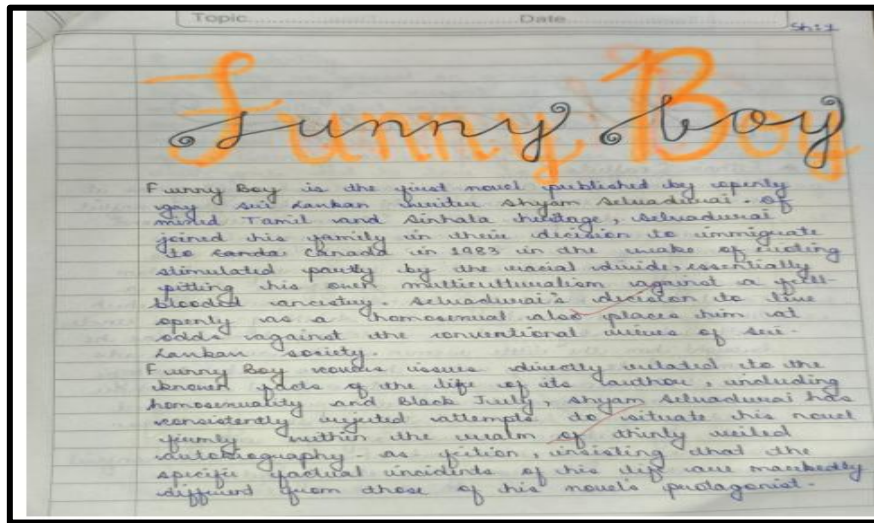 Topic Date
Sh:1
Funny Boy
Funny Boy is the first novel published by openly
gay Sri Lankan writer Shyam Selvadurai. Of
mixed Tamil and Sinhala heritage, Selvadurai
joined his family in their decision to immigrate
to Canada in 1983 in the wake of rioting
stimulated partly by the racial divide, essentially
pitting his own multiculturalism against a full-
blooded ancestry. Selvadurai's decision to live
openly as a homosexual also places him at
odds against the conventional views of Sri-
Lankan society.
Funny Boy issues directly related to the
known facts of the life of its author, including
homosexuality and Black July, Shyam Selvadurai has
consistently rejected attempts to situate his novel
firmly within the realm of thinly veiled
autobiography - as fiction, insisting that the
specific factual incidents of his life are markedly
different from those of his novel's protagonist.